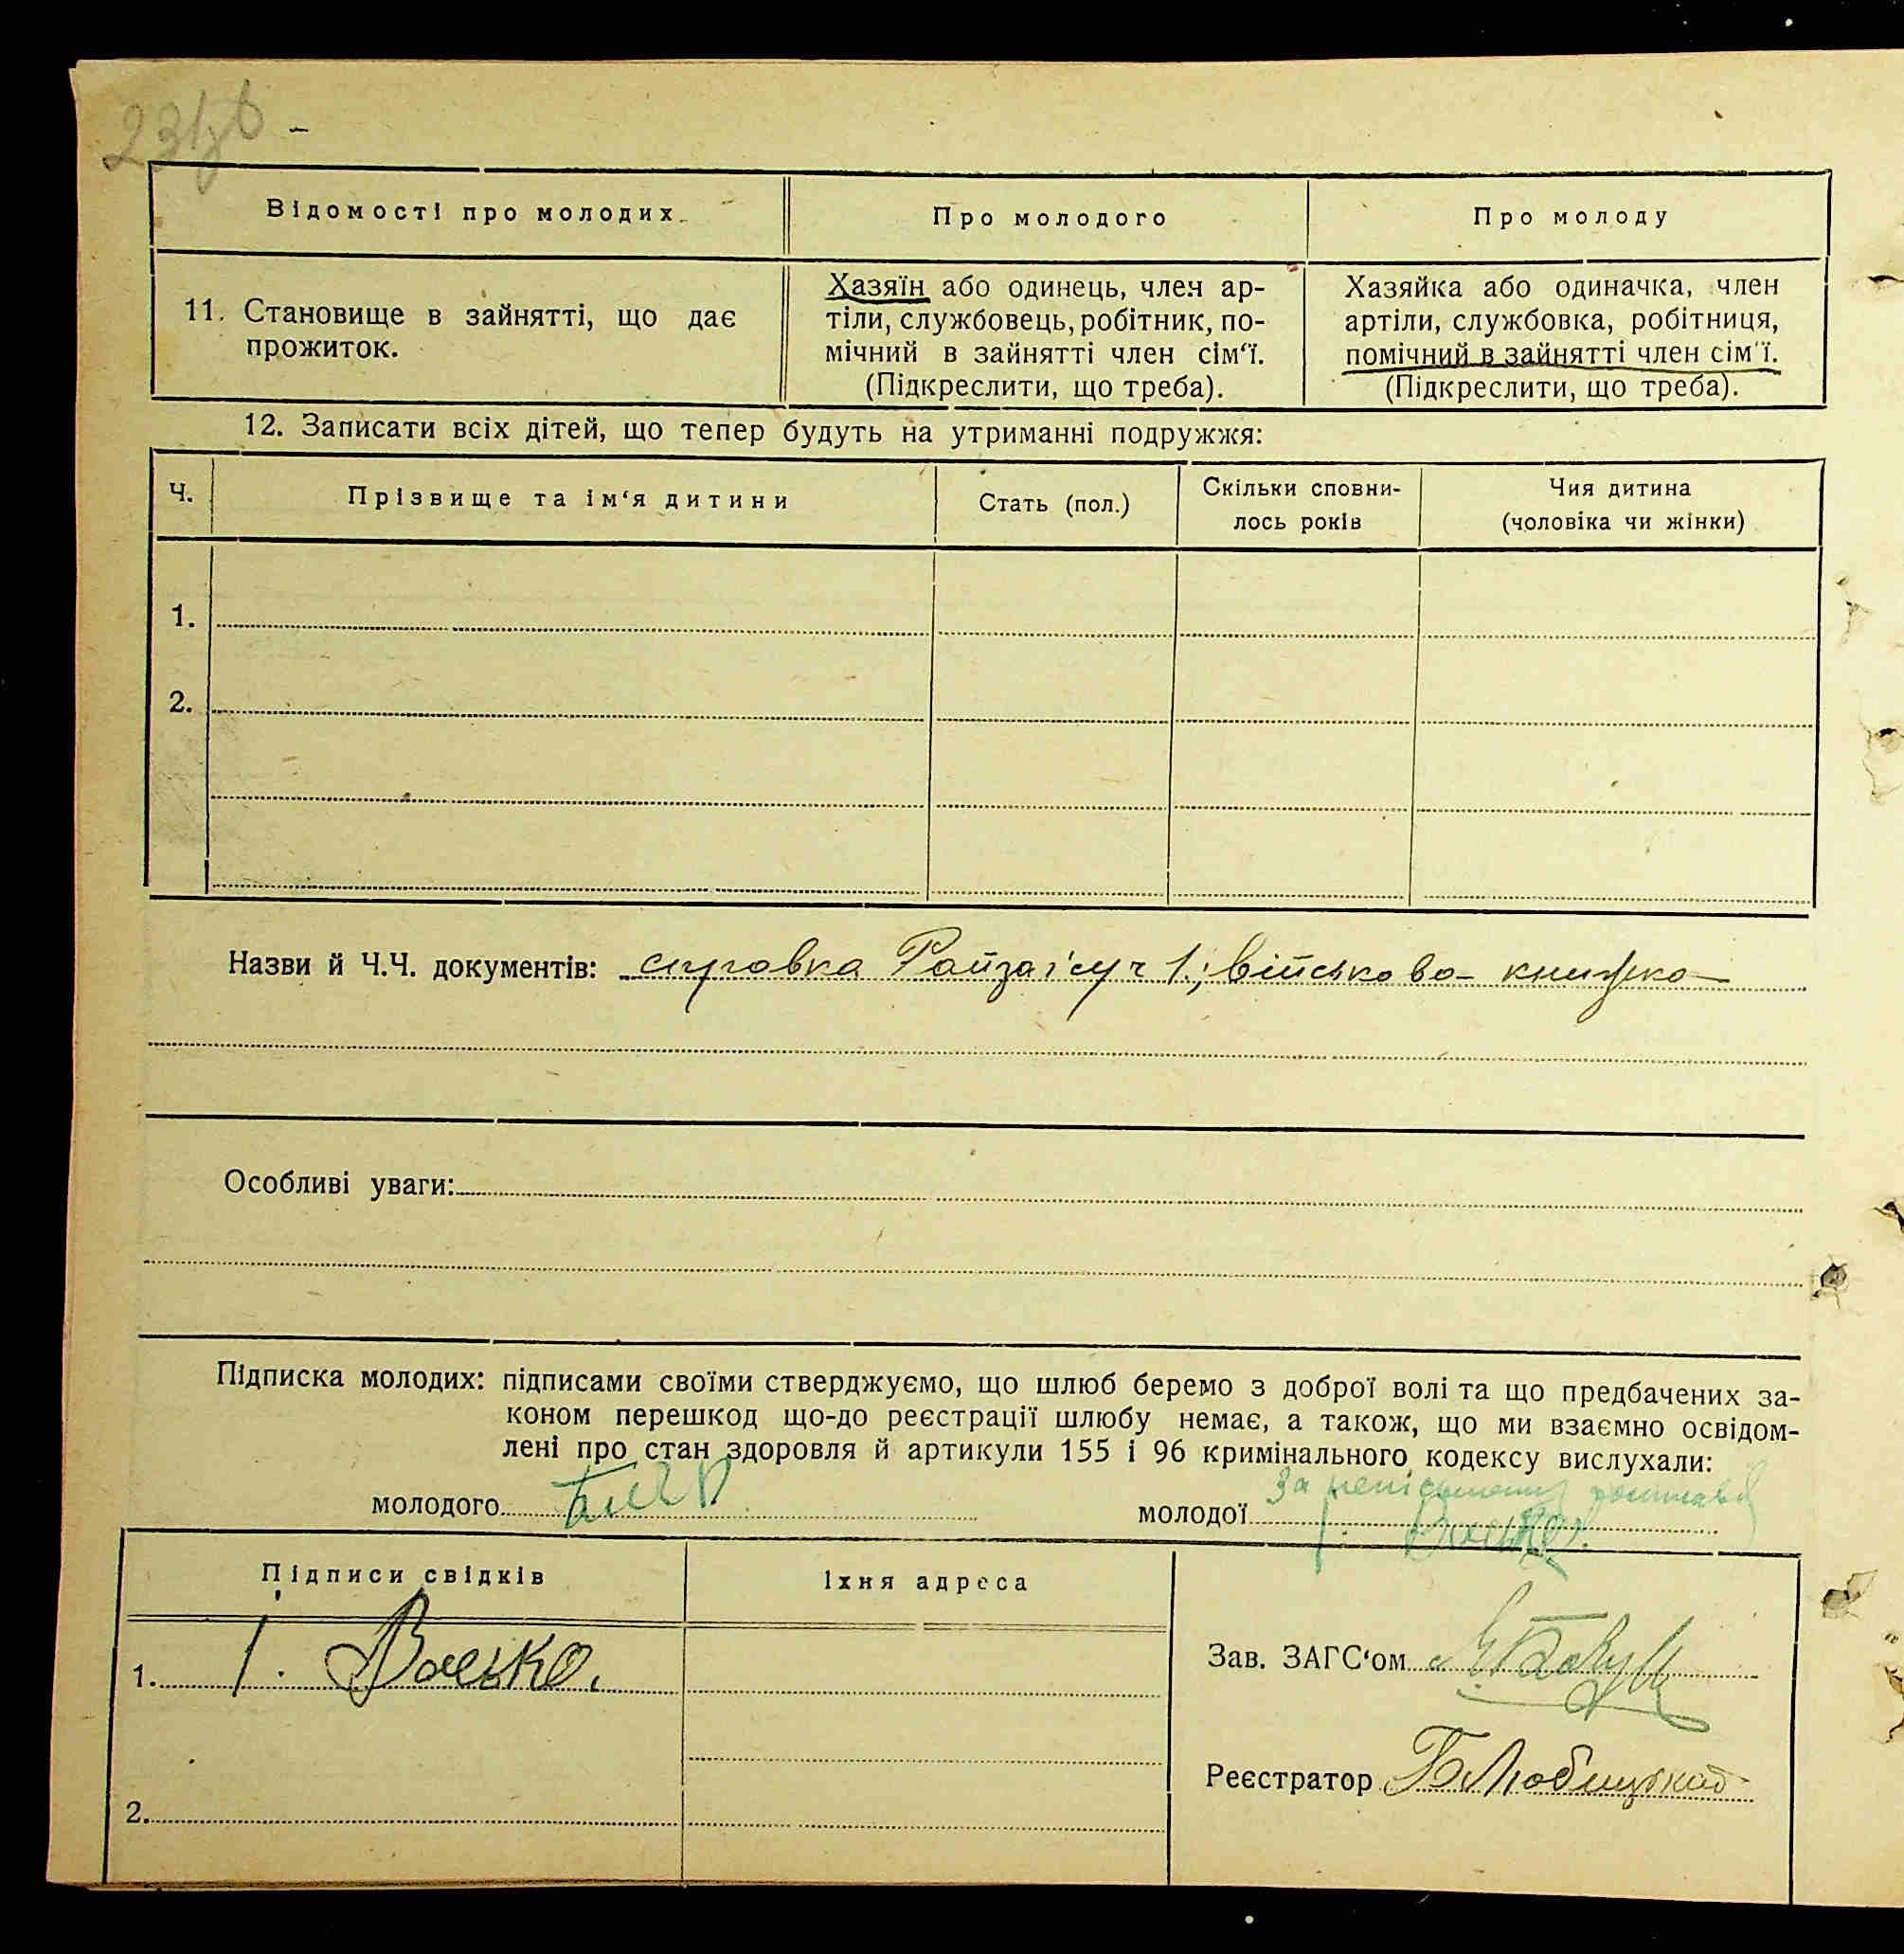 Відомості про молодих
Про молодого
Про молоду
11. Становище в зайнятті, що дає
прожиток.
Хазяїн або одинець, член ар-
тіли, службовець, робітник, по-
мічний в зайнятті член сім‘ї.
(Підкреслити, що треба).
Хазяйка або одиначка, член
артіли, службовка, робітниця,
помічний в зайнятті член сім‘ї.
(Підкреслити, що треба).
12. Записати всіх дітей, що тепер будуть на утриманні подружжя:
Ч.
Прізвище та ім‘я дитини
Стать (пол.)
Скільки сповни-
лось років
Чия дитина
(чоловіка чи жінки)
1.
2.
Назви й Ч.Ч. документів: справка військова книжка
Особливі уваги:
Підписка молодих: підписами своїми стверджуємо, що шлюб беремо з доброї волі та що предбачених за-
коном перешкод що-до реєстрації шлюбу немає, а також, що ми взаємно освідом-
лені про стан здоровля й артикули 155 і 96 кримінального кодексу вислухали:
молодого
За неписьменну
молодої
Підписи свідків
Їхня адреса
1. І. Васько.
2.
Зав. ЗАГС‘ом
Реєстратор